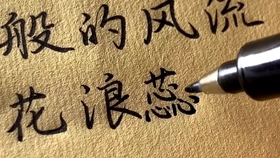 般的风流
花浪蕊